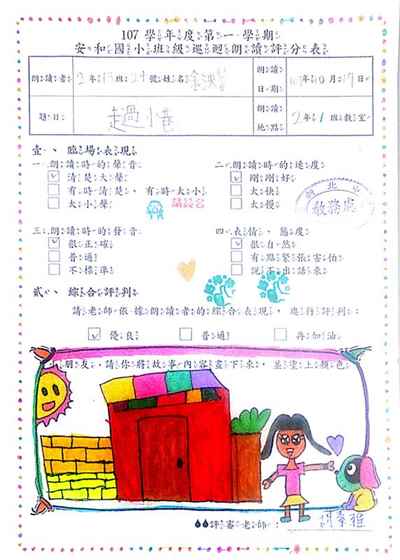 107 學年度第一學期
安和國小班級巡迴朗讀評分表
朗讀者 2年 班 29號姓名
朗讀日期 107年10月19日
題目 走過小巷
朗讀地點 2年1班教室
壹、臨場表現
一、朗讀時的聲音
二、朗讀時的速度
清楚大聲
剛剛好
有時清楚、有時太小
太快
太小聲
請簽名
太慢
教務處
三、朗讀時的發音
四、表情、態度
很正確
很自然
普通
有點緊張害怕
不標準
說不出話來
貳、綜合評判
請老師依據朗讀者的綜合表現,進行評判:
優良
普通
再加油
小朋友,請你將故事內容畫下來,並塗上顏色
評審老師: